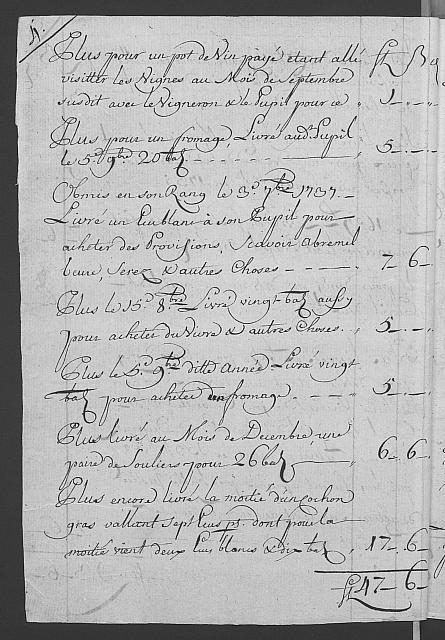 Plus pour un pot de Vin payé etant allé ff ß
visitter les Vignes au Mois de Septembre
susdit avec le Vigneron & le Pupil pour ce " 1 " -
Plus pour un fromage, Livré aud. Pupil
le 5.e 9bre 20 baz - - - - - 5 - " -
Obmis en son Rang le 3.e 7bre 1737. -
Livré un Ecublanc à son Pupil pour
acheter des Provisions, Scavoir
Serez & autres Choses - - - - " 7 - 6 -
Plus le 15.e 8bre Livré vingt baz aussy
pour acheter du Vivre & autres Choses. " 5 - " -
Plus le 5.e 9bre ditte Année Livré vingt
baz pour acheter un fromage - - - " 5 - " -
Plus livré au Mois de Decembre, une
paire de Souliers pour 26 baz " 6 - 6 -
Plus encore livré la moitié d'un Cochon
gras vallant sept Ecus p.s dont pour la
moitié vient deux Ecus blancs & dix baz " 17 - 6 -
ff 47 - 6 -